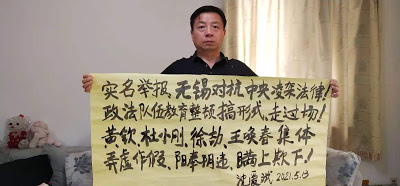 实名举报 无锡对抗中央凌架法律!
政法队伍教育整顿搞形式、走过场!
黄钦、杜小刚、徐劼、王唤春集体
弄虚作假、阳奉阴违、瞒上欺下!
沈爱斌 2021.5.13